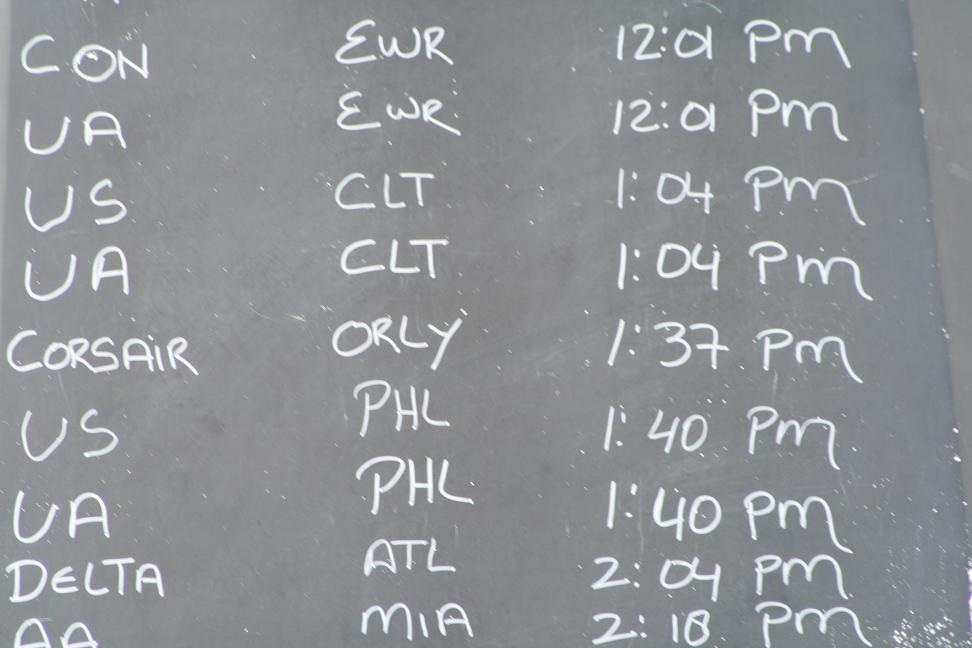 CON EWR 12:01 PM
UA EWR 12:01 PM
US CLT 1:04 PM
UA CLT 1:04 PM
CORSAIR ORLY 1:37 PM
US PHL 1:40 PM
UA PHL 1:40 PM
DELTA ATL 2:04 PM
AA MIA 2:18 PM